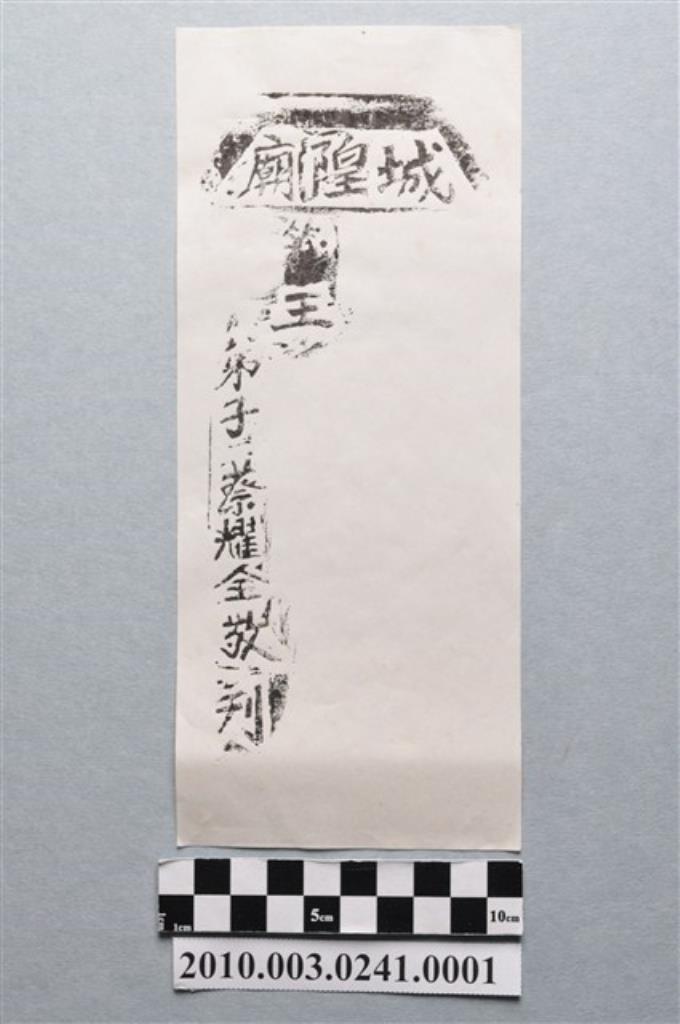 城隍廟
王
弟子蔡耀全敬刋
5cm
10cm
1cm
2010.003.0241.0001